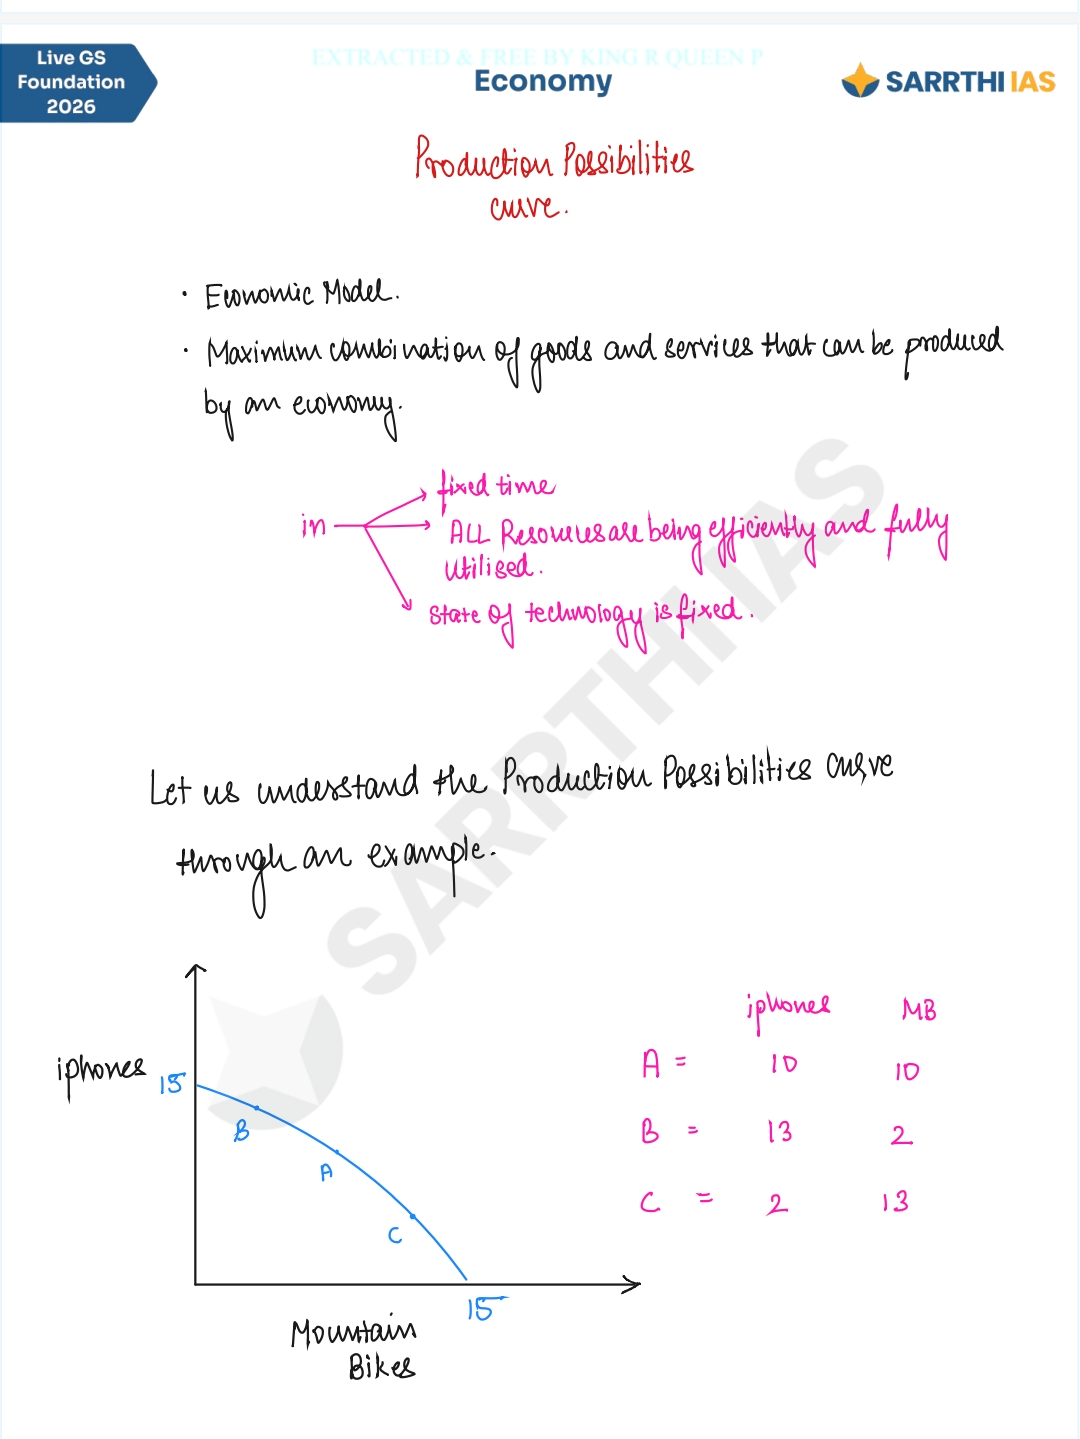 Live GS
Foundation
2026
EXTRACTED & FREE BY KING R QUEEN P
Economy
SARRTHI IAS
Production Possibilities
curve.
• Economic Model.
• Maximum combination of goods and services that can be produced
by an economy.
in
fixed time
ALL Resources are being efficiently and fully
utilised.
state of technology is fixed.
Let us understand the Production Possibilities curve
through an example.
SARRTHI IAS
iphones
15
B
A
C
15
Mountain
Bikes
iphones MB
A = 10 10
B = 13 2
C = 2 13